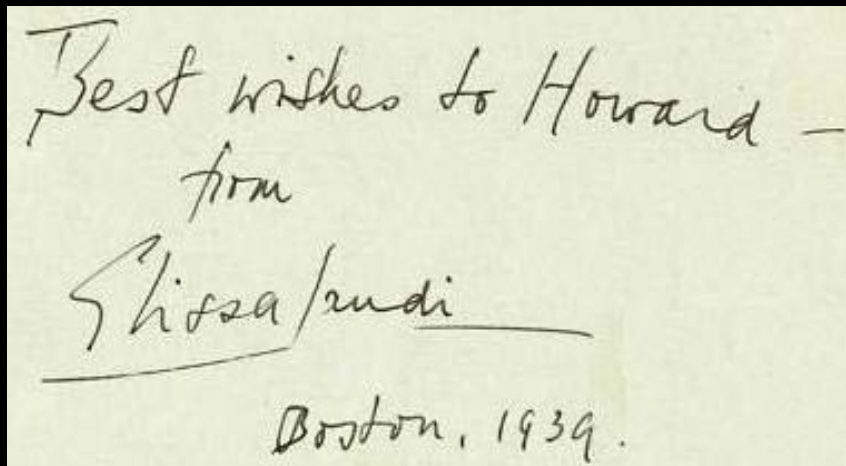 Best wishes to Howard -
from
Elissa Landi
Boston, 1939.